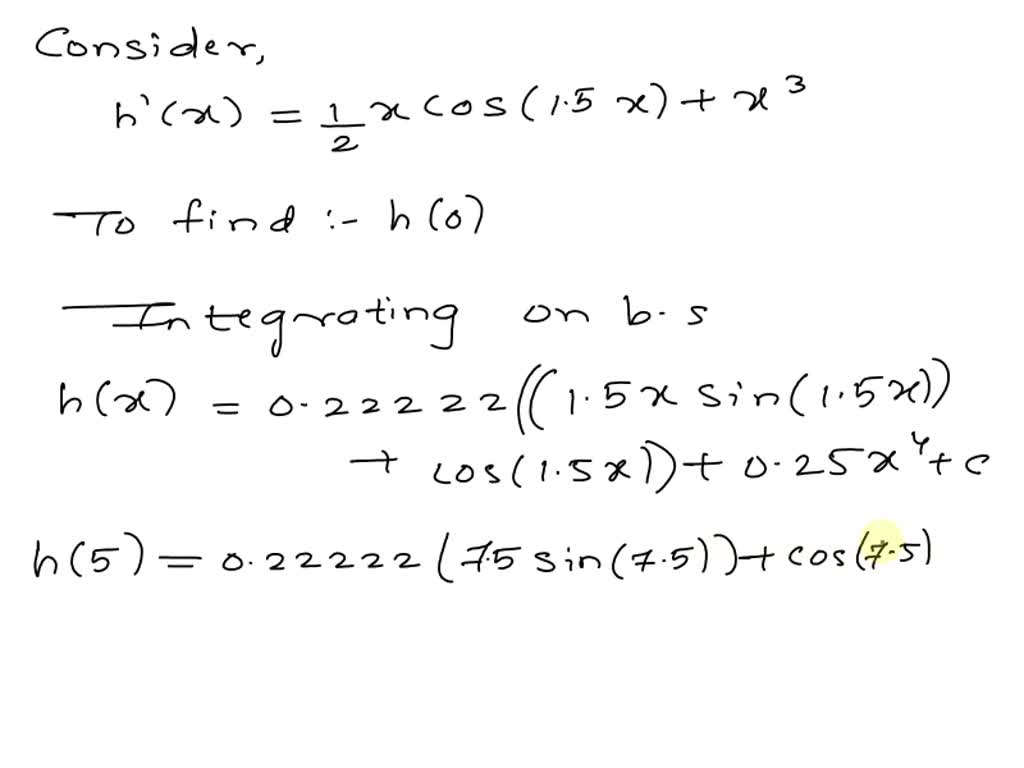 Consider,
h'(x) = 1/2 x cos(1.5 x) + x³
To find :- h(0)
Integrating on b.s
h(x) = 0.22222((1.5x sin(1.5x))
+ cos(1.5x)) + 0.25x⁴ + c
h(5) = 0.22222(7.5 sin(7.5)) + cos(7.5)